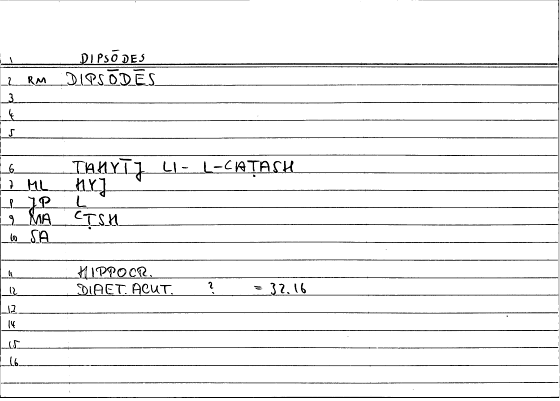 1 DIPSŌDES
2 RM DIPSŌDĒS
3
4
5
6 TAHYĪJ LI- L-CAṬASH
7 ML HYJ
8 JP L
9 MA CṬSH
10 SA
11 HIPPOCR.
12 DIAET. ACUT. ? = 32.16
13
14
15
16